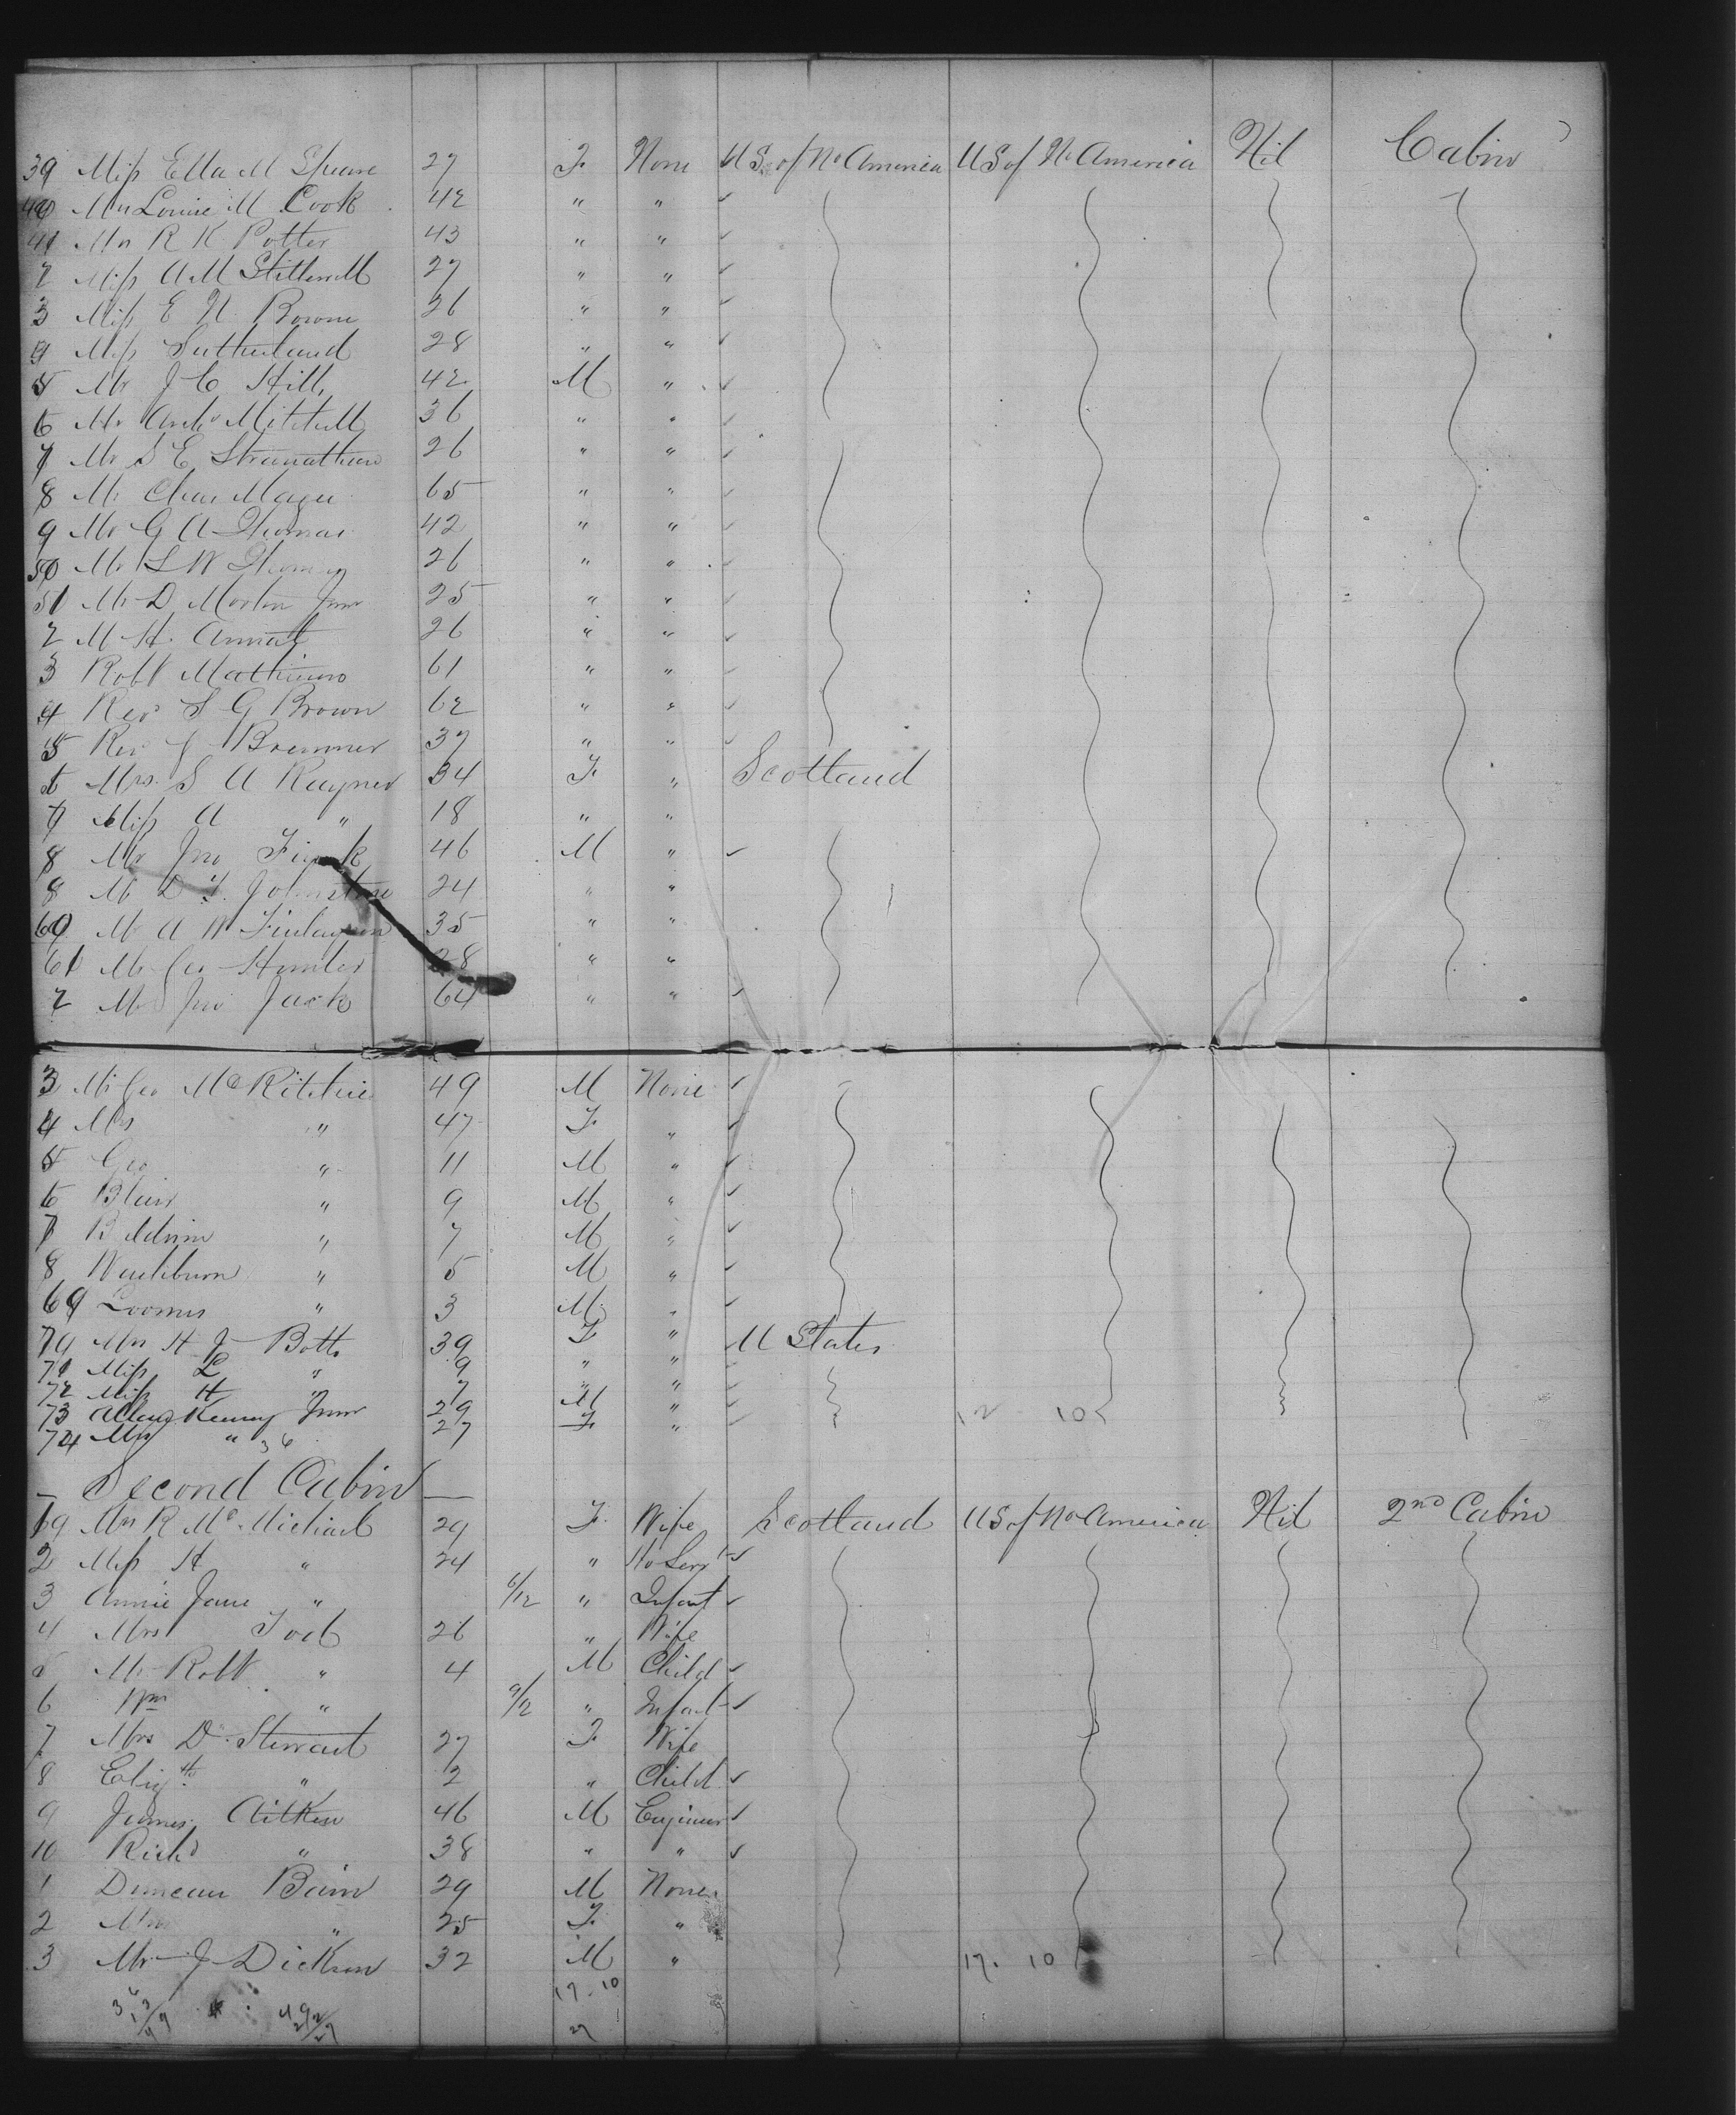 39 Miss Ella M Speare 27 F. None U S. of No America U S of No America Nil Cabin
40 Mrs Louise M Cook 42 " "
41 Mrs R K Potter 43 " "
2 Miss A M 27 " "
3 Miss E N 26 " "
4 Miss Sutherland 28 " "
5 Mr J C Hill 42 M "
6 Mr Mitchell 36 " "
7 Mr S E 26 " "
8 Mr Chas Magee 65 " "
9 Mr G A Thomas 42 " "
50 Mr L W Thomas 26 " "
51 Mr D Morton Junr 25 " "
2 M H. 26 " "
3 Robt Mathiews 61 " "
4 Revd S G Brown 62 " "
5 Rev J Bremner 37 " "
6 Mrs. S A Rayner 34 F. " Scotland
7 Miss A " 18 " "
8 Mr Jno 46 M "
8 M D Johnstone 24 " "
60 Mr A W Finlayson 35 " "
61 Mr Geo Hunter 28 " "
2 Mr Jno Jack 64 " "
3 Mr Geo McRitchie 49 M None
4 Mrs " 47 F. "
5 Geo " 11 M "
6 Blair " 9 M "
7 " 7 M "
8 Washburn " 5 M "
69 Loomis " 3 M "
70 Mrs H J Botts 39 F " U States
71 Miss L " 9 " "
72 Miss H " 7 " "
73 Allen Kenny Junr 29 M "
74 Mrs " 27 F. " 12 10
36
— Second Cabin —
1 Mrs R McMichael 29 F. Wife Scotland US of No America Nil 2nd Cabin
2 Miss H " 24 " Ho Servt
3 Annie Jane " 6/12 " Infant
4 Mrs Tod 26 " Wife
5 Mr Robt " 4 M Child
6 Wm " 9/12 " Infant
7 Mrs D. Stewart 27 F. Wife
8 Elizth " 2 " Child
9 James Aitken 46 M Engineer
10 Richd " 38 " "
1 Duncan Bain 29 M None
2 Mrs " 25 F. "
3 Mr J Dickson 32 M " 17. 10
17-10
27